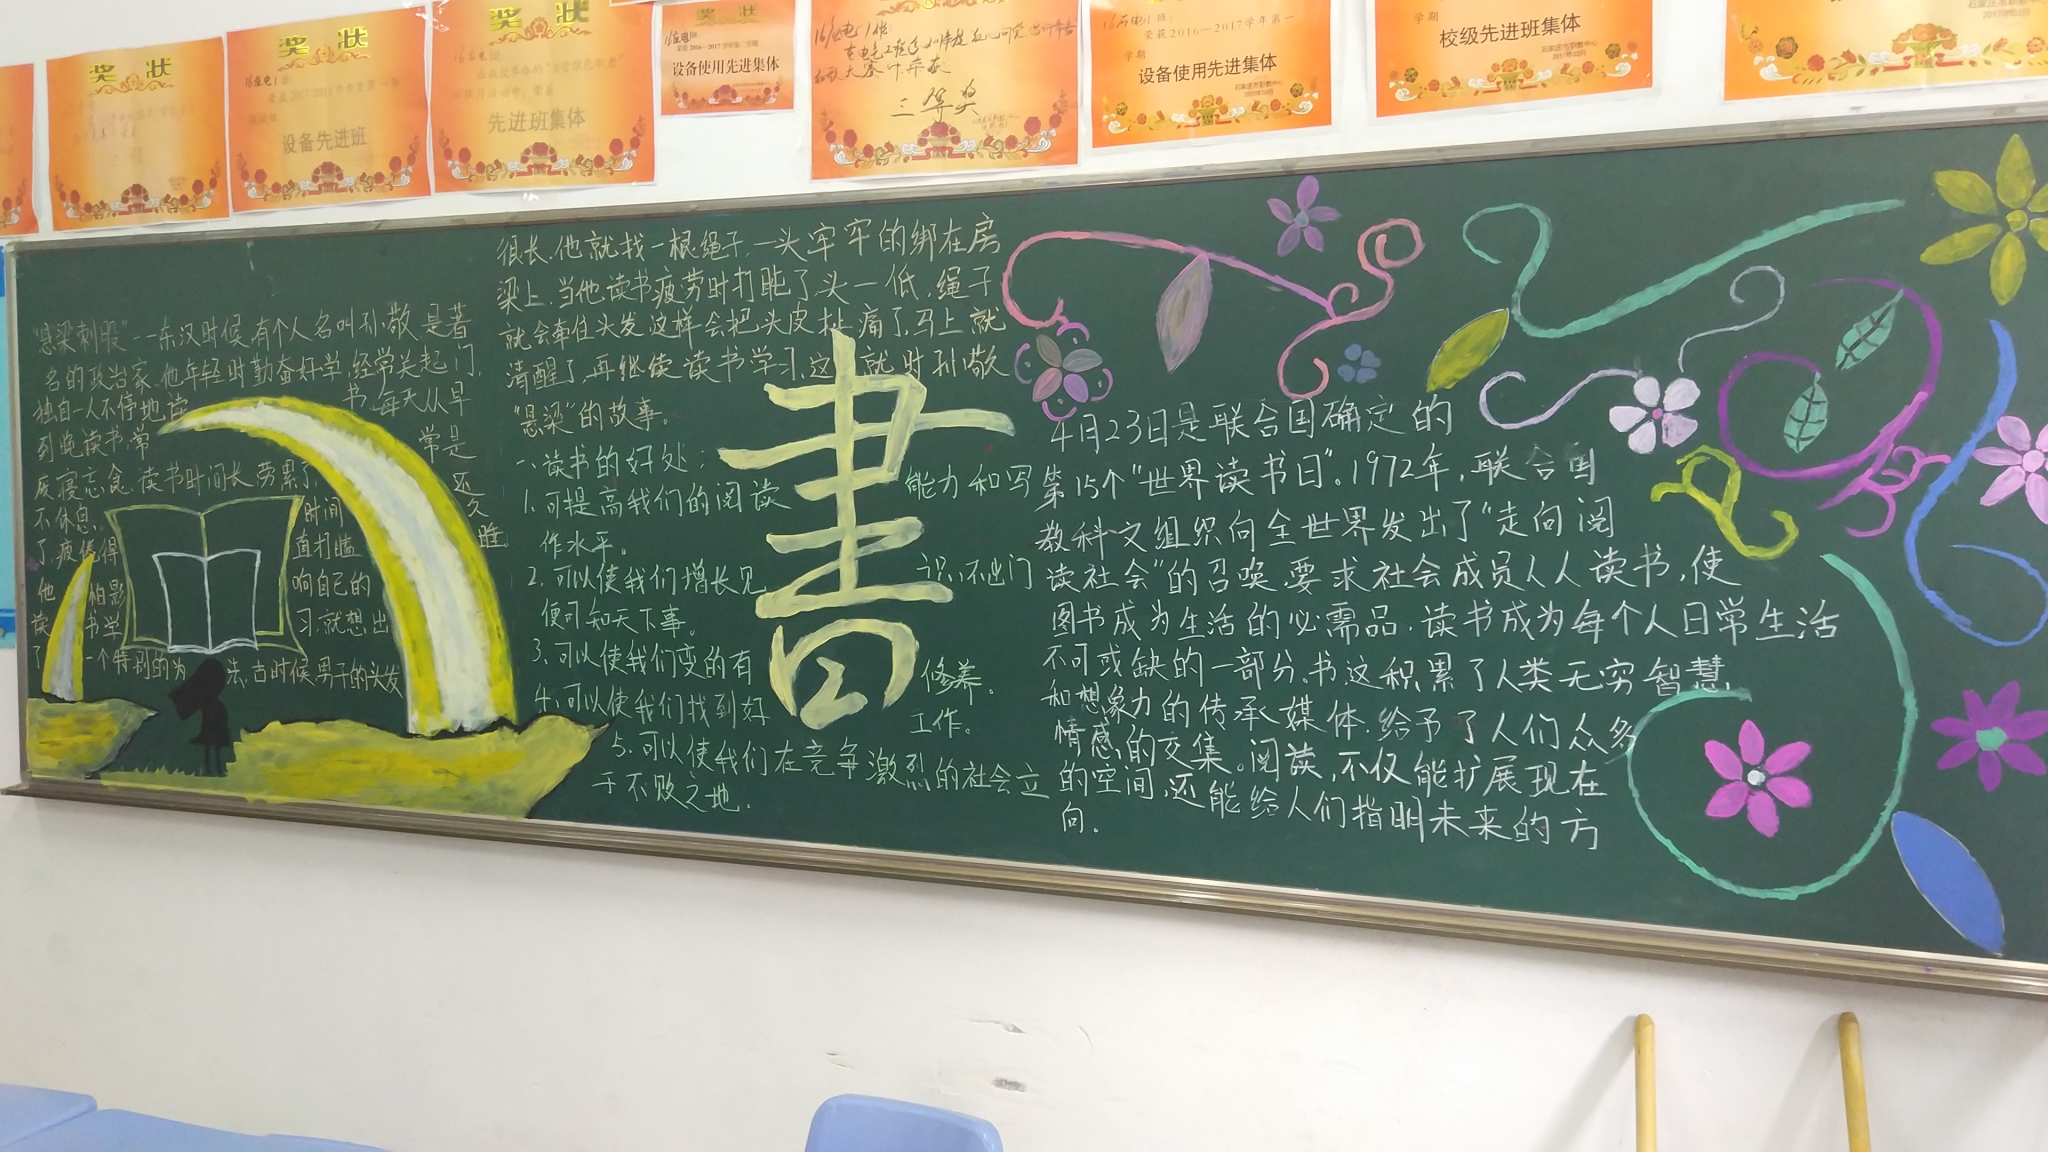 奖 状
奖 状
16应电1班:
荣获2017-2018学年度第一学
设备先进班
奖 状
先进班集体
奖 状
荣获2016-2017学年第二学期
设备使用先进集体
三等奖
荣获2016-2017学年第一
学期
设备使用先进集体
学期
校级先进班集体
石家庄市职教中心
"悬梁刺股"--东汉时候,有个人名叫孙敬,是著
名的政治家.他年轻时勤奋好学,经常关起门,
独自一人不停地读书.每天从早
到晚读书,常常是
废寝忘食.读书时间长,劳累了,还
不休息.时间久
了,疲倦得直打瞌睡.
他怕影响自己的
读书学习,就想出
了一个特别的办法.古时候男子的头发
很长.他就找一根绳子,一头牢牢的绑在房
梁上.当他读书疲劳时打盹了,头一低,绳子
就会牵住头发这样会把头皮扯痛了,马上就
清醒了,再继续读书学习,这就时孙敬
"悬梁"的故事。
一、读书的好处:
1.可提高我们的阅读能力和写
作水平。
2.可以使我们增长见识,不出门
便可知天下事。
3.可以使我们变的有修养。
4.可以使我们找到好工作。
5.可以使我们在竞争激烈的社会立
于不败之地.
書
4月23日是联合国确定的
第15个"世界读书日"。1972年,联合国
教科文组织向全世界发出了"走向阅
读社会"的召唤,要求社会成员人人读书,使
图书成为生活的必需品.读书成为每个人日常生活
不可或缺的一部分.书这积累了人类无穷智慧
和想象力的传承媒体.给予了人们众多
情感的交集。阅读,不仅能扩展现在
的空间,还能给人们指明未来的方
向.